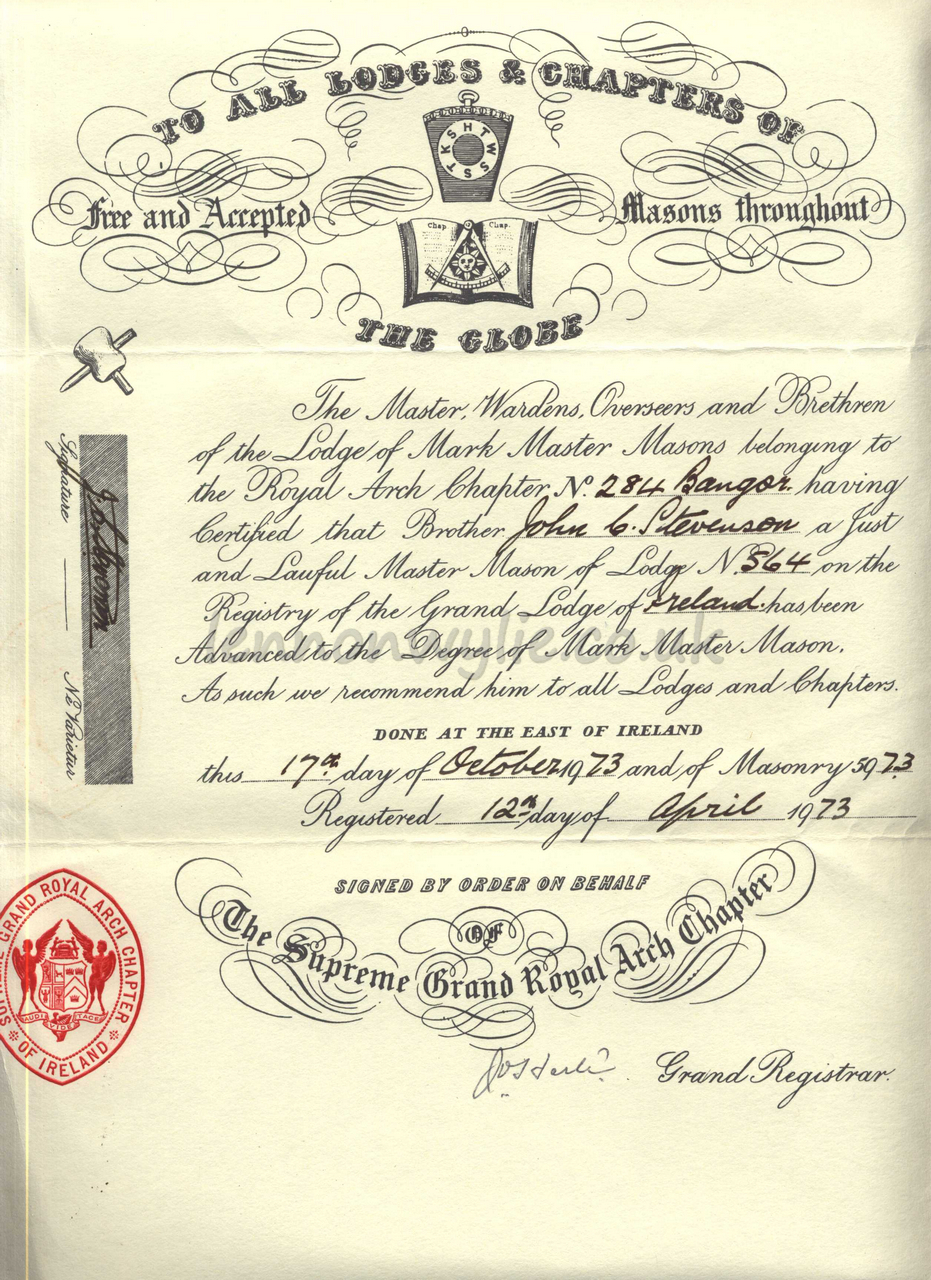 TO ALL LODGES & CHAPTERS OF
H T W S S T K S
Free and Accepted Masons throughout
Chap Chap
THE GLOBE
The Master, Wardens, Overseers and Brethren
of the Lodge of Mark Master Masons belonging to
the Royal Arch Chapter, No. 284 Bangor having
Certified that Brother John C. Stevenson a Just
and Lauful Master Mason of Lodge No. 564 on the
Registry of the Grand Lodge of Ireland. has been
Advanced to the Degree of Mark Master Mason.
As such we recommend him to all Lodges and Chapters.
DONE AT THE EAST OF IRELAND
this 17th day of October 1973 and of Masonry 5973
Registered 12th day of April 1973
Signature Ne Varietur
SIGNED BY ORDER ON BEHALF
OF
The Supreme Grand Royal Arch Chapter
Grand Registrar.
SUPREME GRAND ROYAL ARCH CHAPTER
AUDI VIDE TACE
OF IRELAND
lennonwylie.co.uk